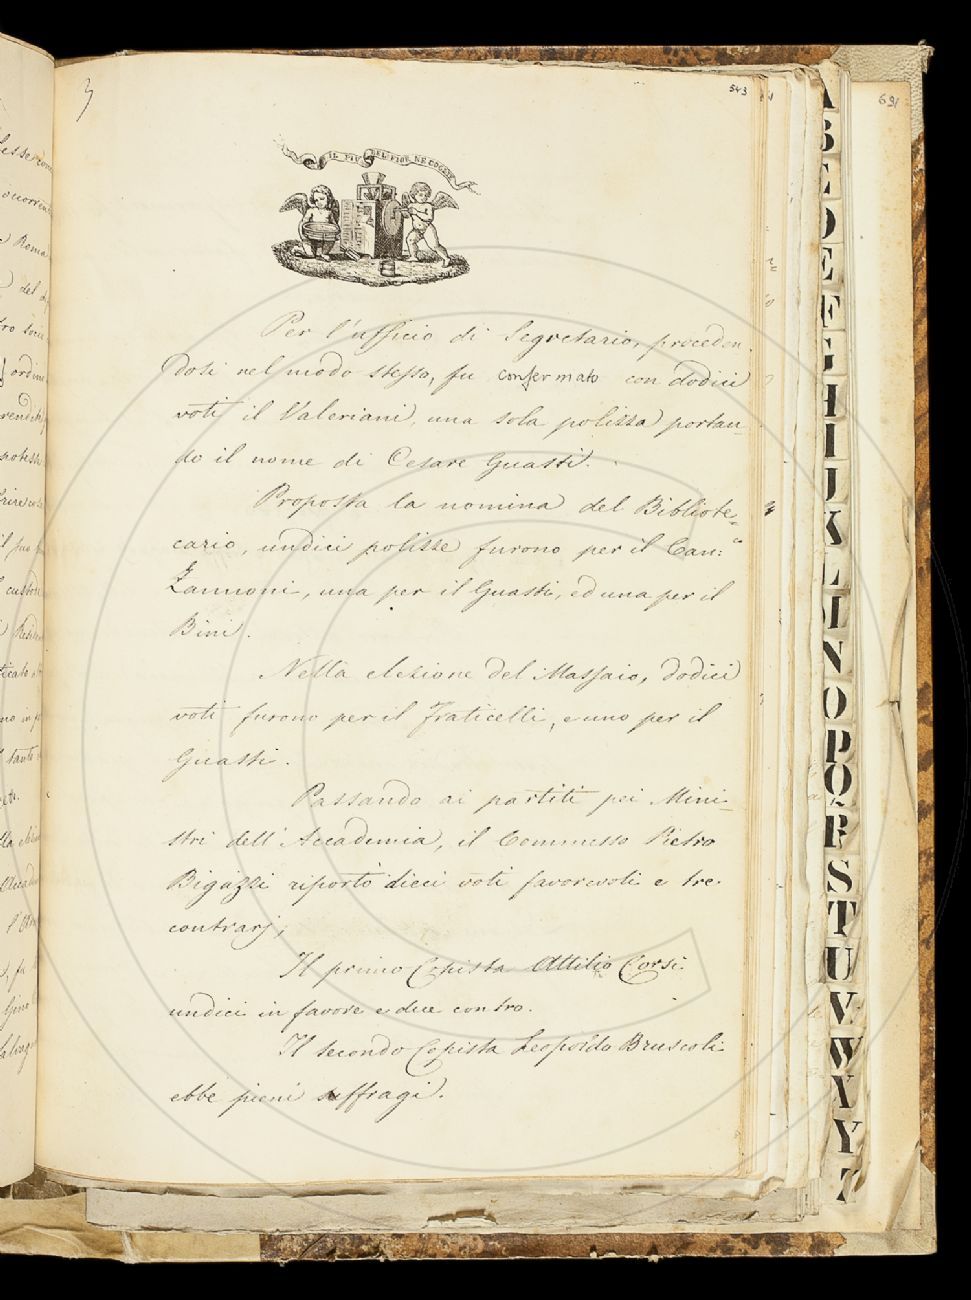 3
543
691
IL PIÙ BEL FIOR NE COGLIE
Per l'ufficio di Segretario, proceden
dosi nel modo stesso, fu confermato con dodici
voti il Valeriani, una sola polizza portan-
do il nome di Cesare Guasti.
Proposta la nomina del Bibliote=
cario, undici polizze furono per il Can:co
Zannoni, una per il Guasti, ed una per il
Bini.
Nella elezione del Massaio, dodici
voti furono per il Fraticelli, e uno per il
Guasti.
Passando ai partiti pei Mini-
stri dell'Accademia, il Commesso Pietro
Bigazzi riportò dieci voti favorevoli e tre
contrarj;
Il primo Copista Attilio Corsi
undici in favore e due contro.
Il secondo Copista Leopoldo Bruscoli
ebbe pieni suffragi.
A
B
C
D
E
F
G
H
I
J
K
L
M
N
O
P
Q
R
S
T
U
V
W
X
Y
Z